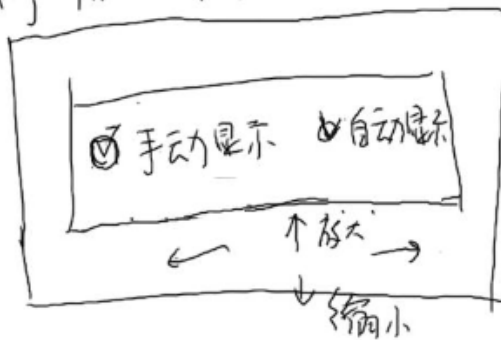 手动显示 自动显示
↑放大
← →
↓缩小